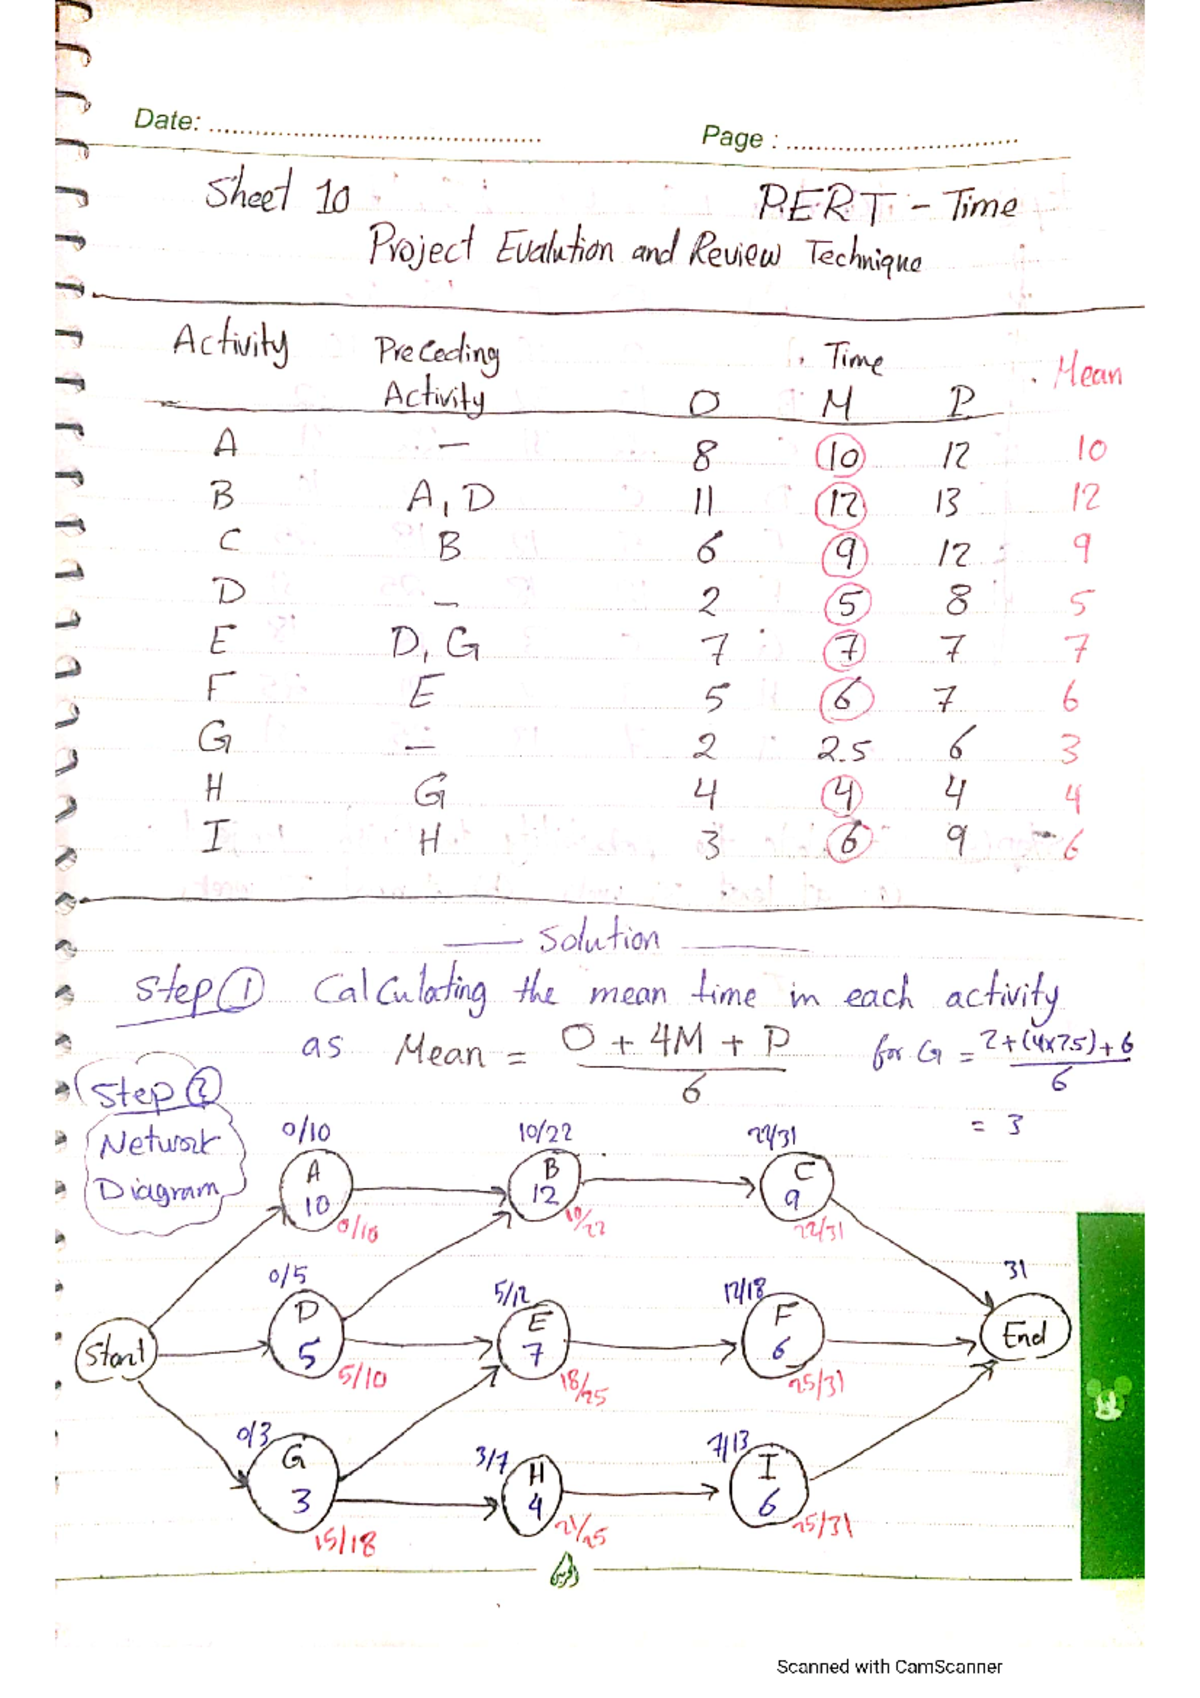 Date: ............................................
Page : ...............................
Sheet 10 PERT - Time
Project Evalution and Review Technique
Activity Preceding Activity Time Mean
O M P
A - 8 10 12 10
B A, D 11 12 13 12
C B 6 9 12 9
D - 2 5 8 5
E D, G 7 7 7 7
F E 5 6 7 6
G - 2 2.5 6 3
H G 4 4 4 4
I H 3 6 9 6
Solution
Step 1 Calculating the mean time in each activity
as Mean = O + 4M + P / 6 for G = 2+(4x2.5)+6 / 6
= 3
Step 2
Network
Diagram
0/10 10/22 22/31
A B C
10 12 9
0/10 10/22 22/31
0/5 5/12 12/18 31
Start D E F End
5 7 6
5/10 18/25 25/31
0/3 3/7 7/13
G H I
3 4 6
15/18 21/25 25/31
Scanned with CamScanner